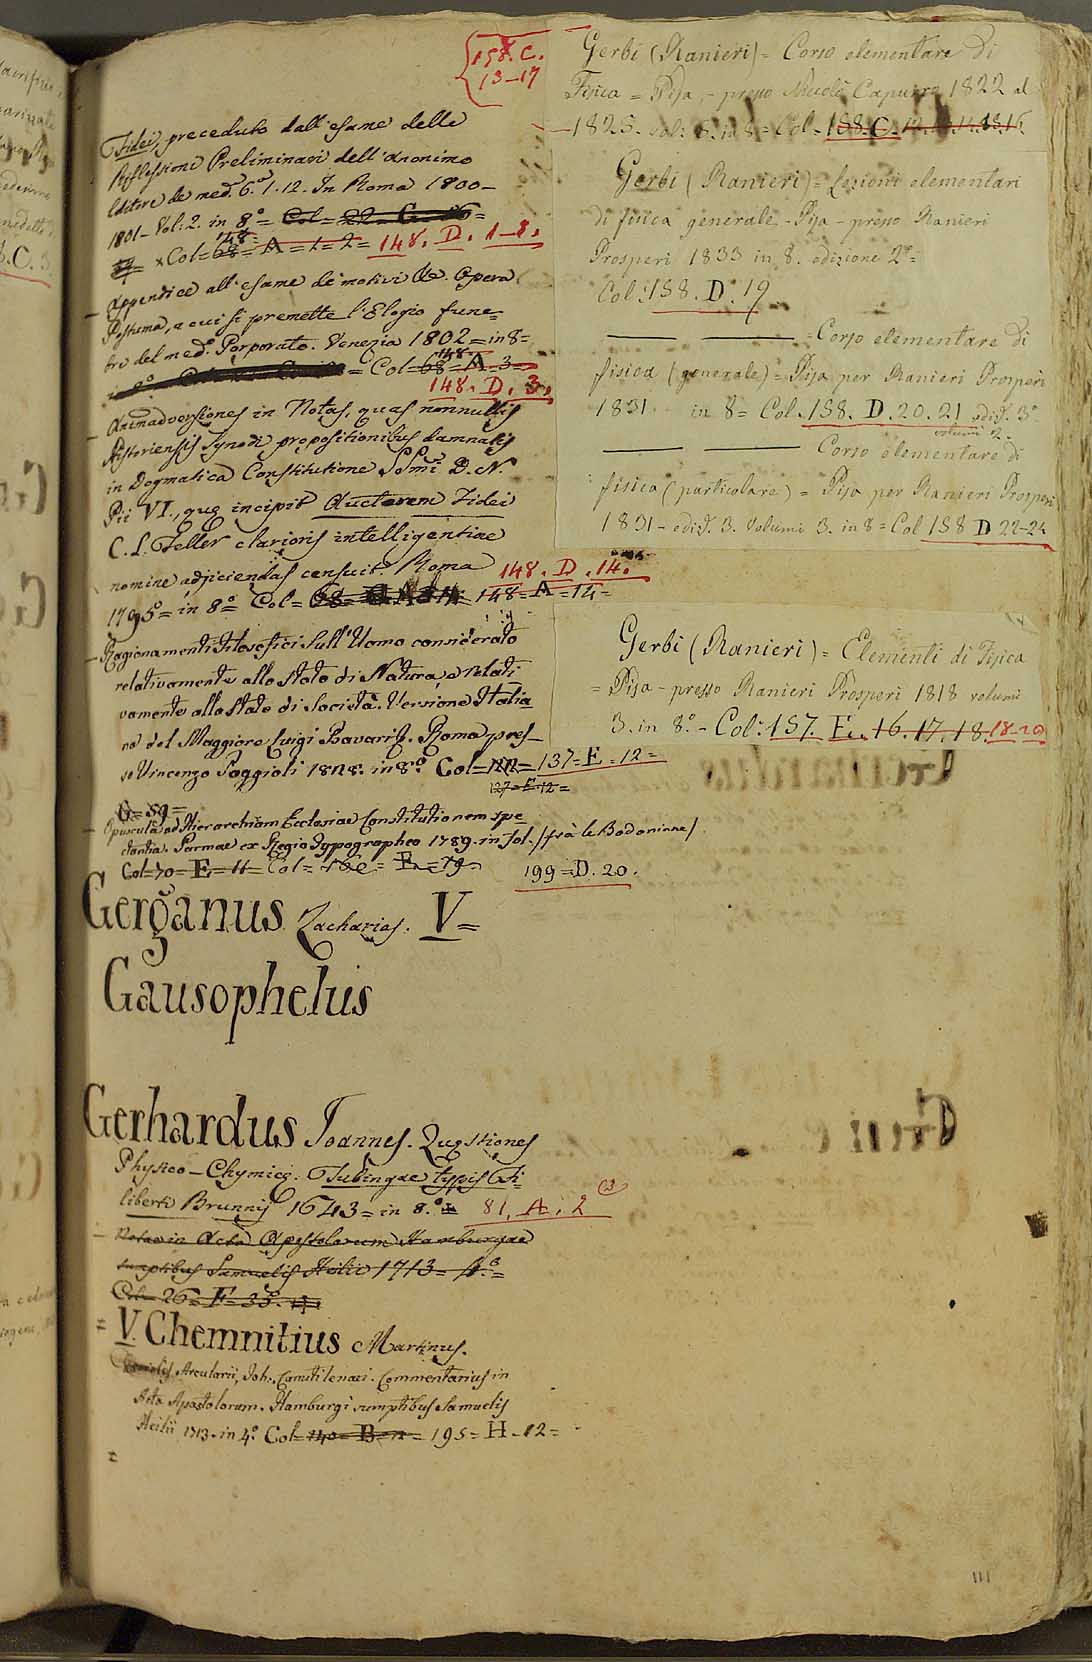 Fidei, preceduto dall'esame delle
Riflessioni Preliminari dell'Anonimo
Editore de med.i 6. 1.12. In Roma 1800-
1801- Vol: 2. in 8.° = Col= 22 G
Col= 68= A = 1= 2= 148. D. 1-2.
148=
Appendice all'esame de motivi &c. Opera
Postuma, a cui si premette l'Elogio fune=
bre del med.° Porporato. Venezia 1802 = in 8=
= Col= 68= A = 3=
148.
148. D. 3.
Animadversiones in Notas, quas nonnullis
Pistoriensis Synodi propositionibus damnatis
in Dogmatica Constitutione SSmi D. N.
Pii VI., quę incipit Auctorem Fidei
C. L. Feller clarioris intelligentiae
nomine adjiciendas censuit. Roma
148. D. 14.
1795= in 8°= Col= 148= A = 14=
Ragionamenti Filosofici sull'Uomo considerato
relativamente allo stato di Natura, e relati
vamente allo stato di Società. Versione Italia
na del Maggiore Luigi Bavari. Roma pres-
so Vincenzo Poggioli 1828. in 8.° Col= 137= E. 12=
127= E 12=
G= 59=
Opuscula ad Hierarchiam Ecclesiae Constitutionem spe
ctantia. Parmae ex Regio Typographeo 1789. in fol. /frà le Bodoniane/
Col= 70= E= 11= Col= E= 79= 199= D. 20.
Gerganus Zacharias. V=
Gausophelus
Gerhardus Joannes. Quęstiones
Physico-Chymicę. Tubingae typis Fi
liberti Brunnij 1643= in 8.° 81. A. 2
Notae in Acta Apostolorum Hamburgae
sumptibus Samuelis Heilii 1713= 4.°=
Col= 26= F= 35.
= V. Chemnitius Martinus.
Arcularii, Joh. Canuti Lenaei. Commentarius in
Acta Apostolorum. Hamburgi sumptibus Samuelis
Heilii 1713. in 4.° Col= 140= B= 195= H-12=
158. C.
13-17
Gerbi (Ranieri) = Corso elementare di
Fisica = Pisa, - presso Niccolò Capurro 1822 al
1825. vol: 5. in 8= Col= 158. C. 12. 13. 14. 15. 16
Gerbi (Ranieri) = Lezioni elementari
di fisica generale - Pisa - presso Ranieri
Prosperi 1833 in 8. edizione 2ª=
Col: 158. D. 19
Corso elementare di
fisica (generale) = Pisa per Ranieri Prosperi
1831 in 8= Col. 158. D. 20. 21 ediz. 3ª
volumi 2.
Corso elementare di
fisica (particolare) = Pisa per Ranieri Prosperi
1831- ediz. 3. Volumi 3. in 8= Col 158 D 22-24
Gerbi (Ranieri) = Elementi di Fisica
= Pisa - presso Ranieri Prosperi 1818 volumi
3. in 8.° - Col: 157. E. 16. 17. 18. 18-20
111